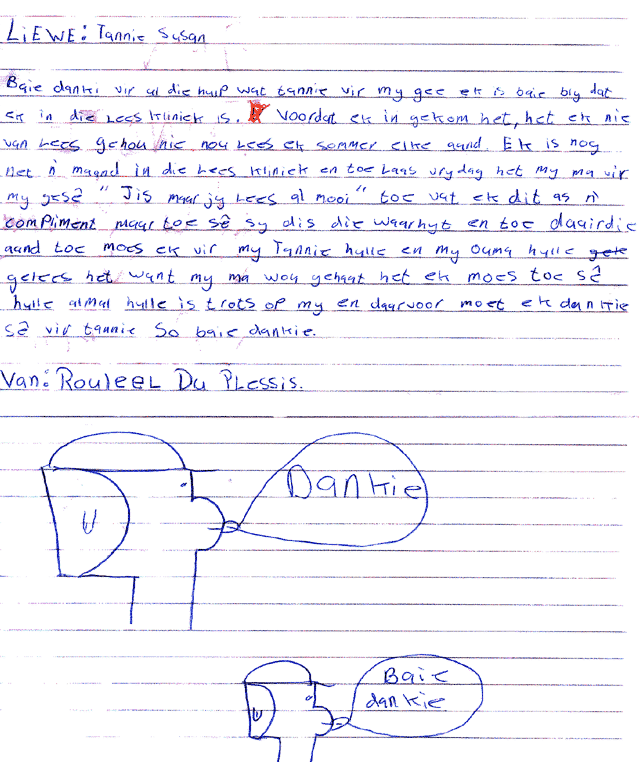 LiEWE: Tannie Susan
Baie danki vir al die hulp wat tannie vir my gee ek is baie bly dat
ek in die Lees kliniek is. Voordat ek in gekom het, het ek nie
van Lees gehou nie nou Lees ek sommer elke aand. Ek is nog
net n' maand in die Lees kliniek en toe Laas vrydag het my ma vir
my gesê " Jis maar jy Lees al mooi" toe vat ek dit as n'
compliment maar toe sê sy dis die waarhyt en toe daairdie
aand toe moes ek vir my Tannie hylle en my Ouma hylle gele
gelees het want my ma wou gehaat het ek moes toe sê
hulle almal hulle is trots op my en daarvoor moet ek dankie
sê vir tannie So baie dankie.
Van: Rouleel Du Plessis.
Dankie
Baie
dankie